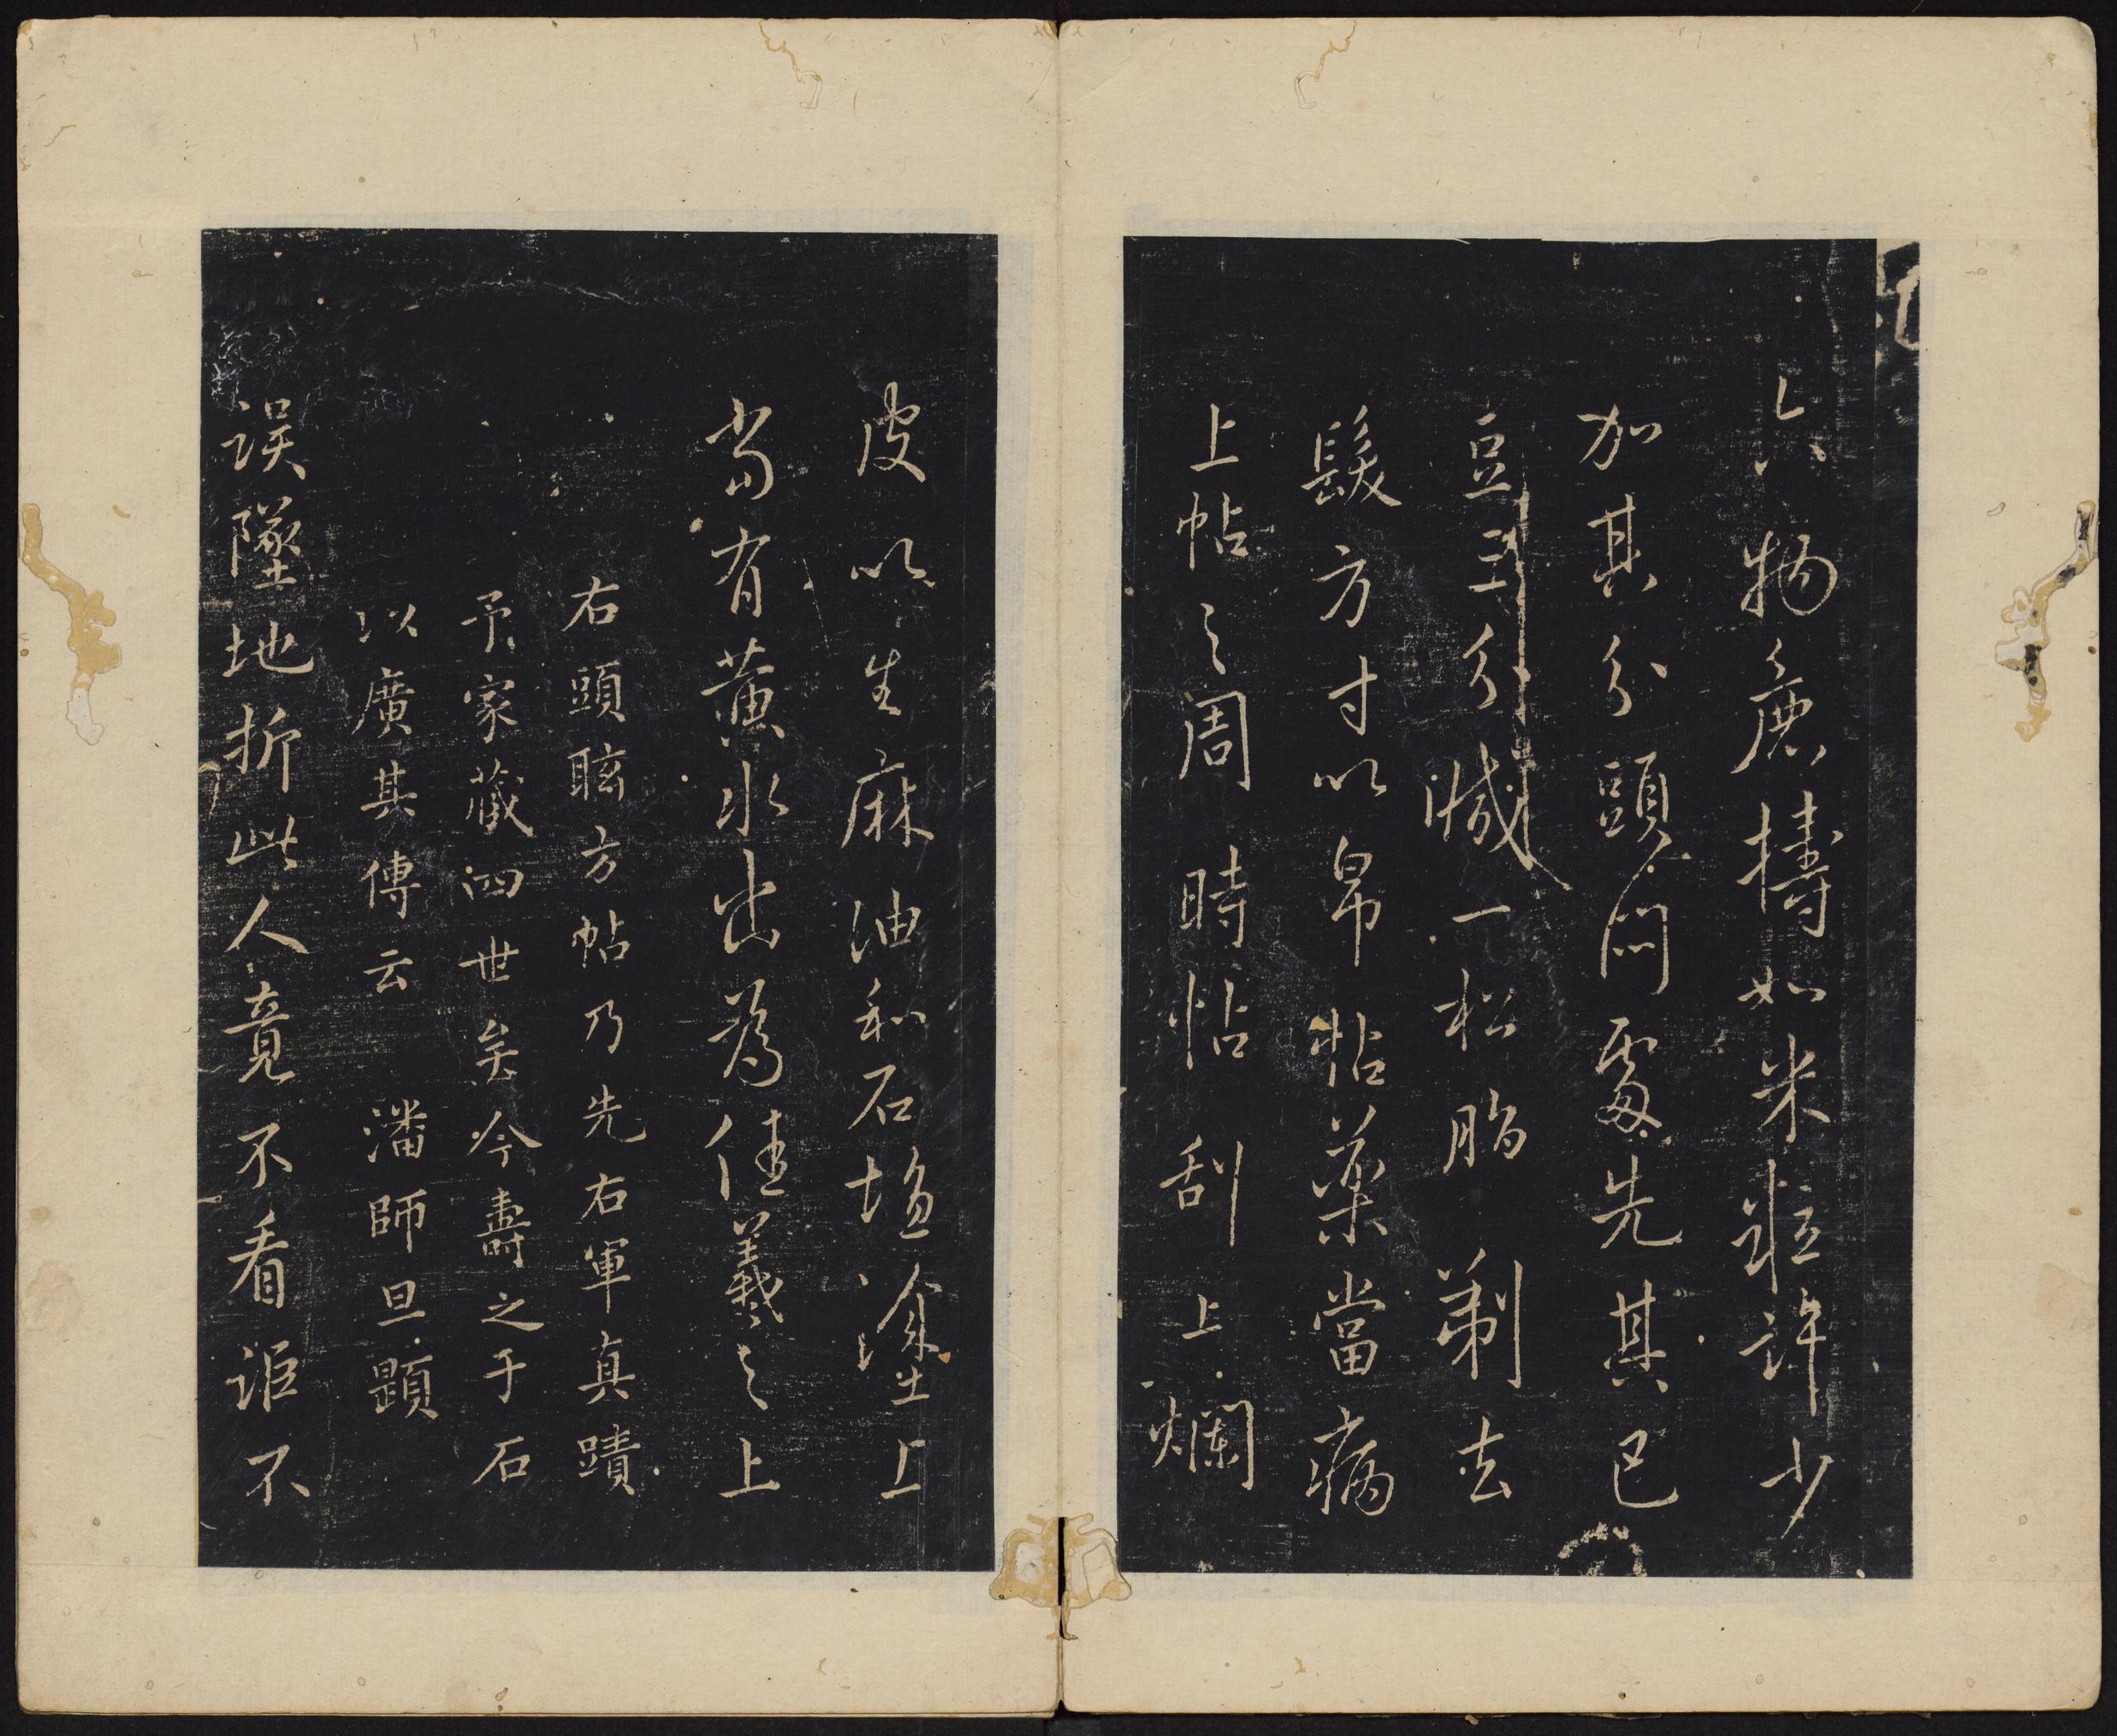 六物麁擣如米粒許少
加其分頭悶處先其巴
豆三分減一松脂剃去
髮方寸以帛帖藥當病
上帖之周時帖刮上爛
皮以生麻油和石塩塗上
當有黃水出為佳羲之上
右頭眩方帖乃先右軍真蹟
予家藏四世矣今壽之于石
以廣其傳云 潘師旦題
誤墜地折此人竟不看詎不